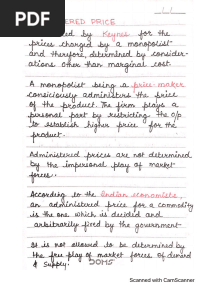 PDF
ERED PRICE
ed by Keynes for the
prices charged by a monopolist
and therefore, determined by consider-
ations other than marginal cost.
A monopolist being a price-maker
consciously administers the price
of the product. The firm plays a
personal part by restricting the o/p
to establish higher price for the
product.
Administered prices are not determined
by the impersonal play of market
forces.
According to the Indian economists,
an administered price for a commodity
is the one which is decided and
arbitrarily fixed by the government.
It is not allowed to be determined by
the free play of market forces of demand
& Supply.
Scanned with CamScanner